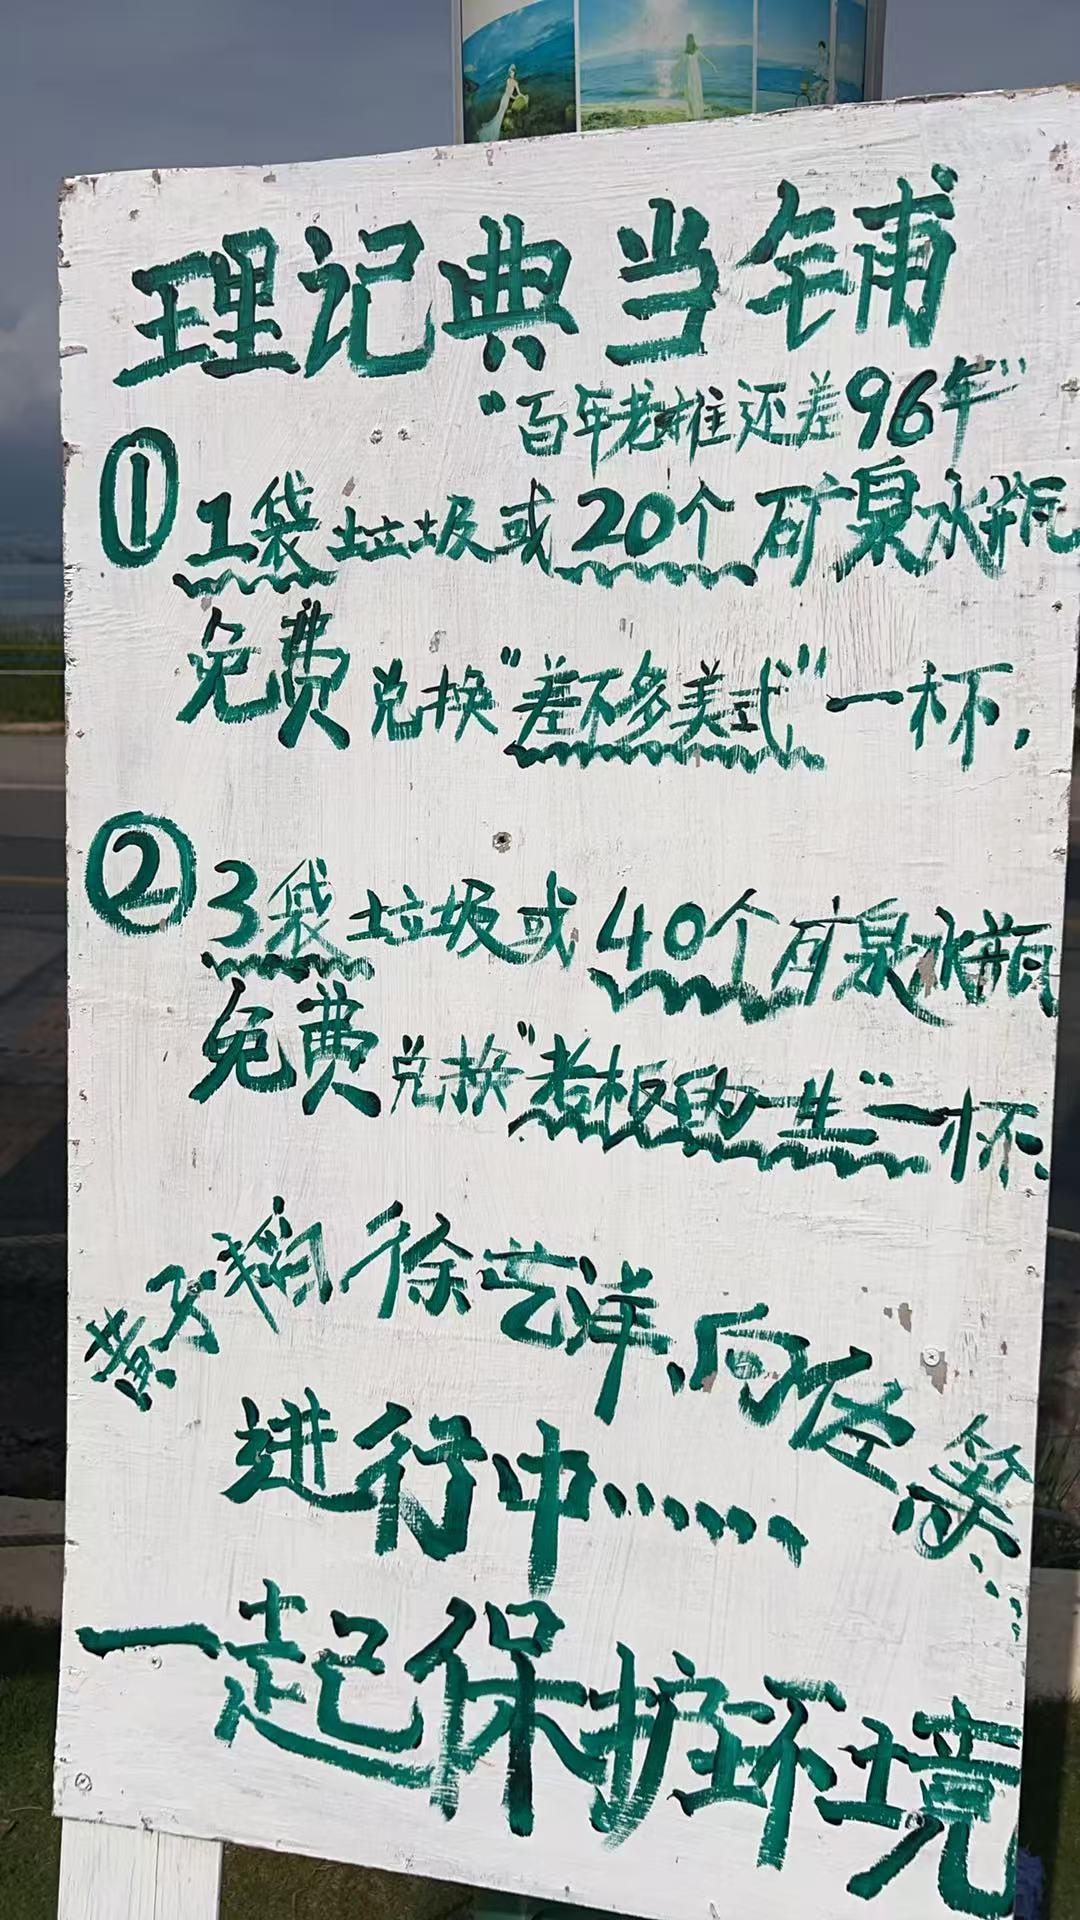 理记典当铺
“百年老摊还差96年”
①1袋垃圾或20个矿泉水瓶
免费兑换“差不多美式”一杯,
②3袋垃圾或40个矿泉水瓶
免费兑换“老板的一生”一杯.
黄子韬、徐艺洋、向佐等……
进行中……
一起保护环境